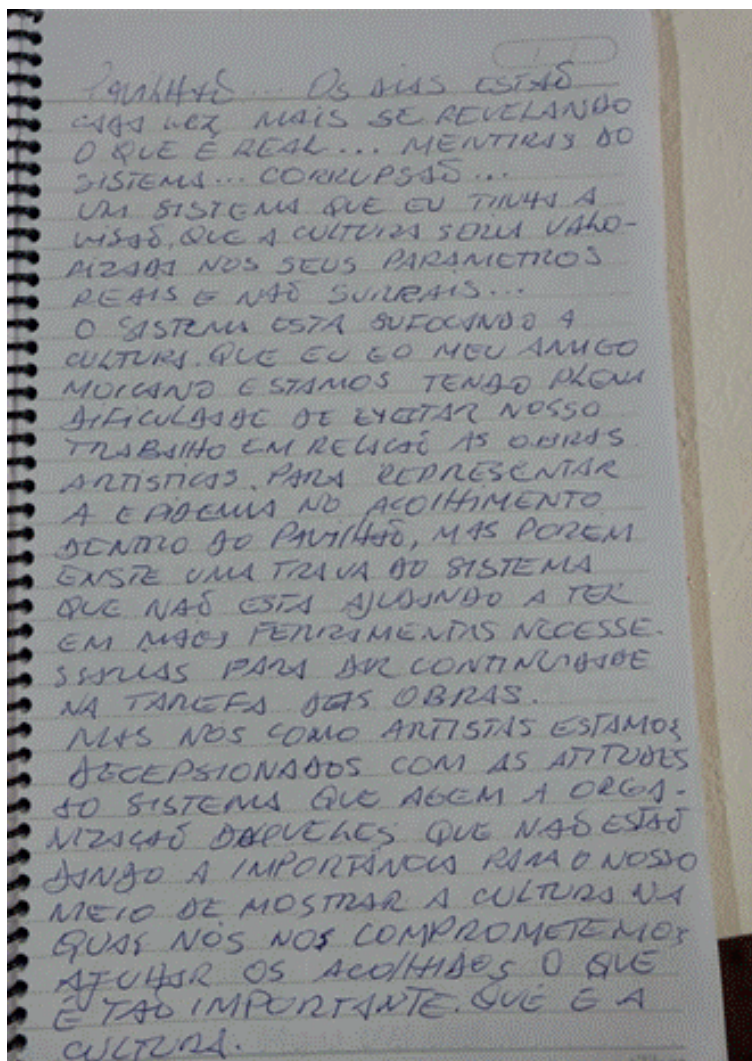 PAVILHAÕ... OS DIAS ESTAÕ
CADA VEZ MAIS SE REVELANDO
O QUE É REAL... MENTIRAS DO
SISTEMA... CORRUPSAÕ...
UM SISTEMA QUE EU TINHA A
VISAÕ, QUE A CULTURA SERIA VALO-
RIZADA NOS SEUS PARAMETROS
REAIS E NAÕ SURRAIS...
O SISTEMA ESTA SUFOCANDO A
CULTURA. QUE EU E O MEU AMIGO
MOICANO ESTAMOS TENDO PLENA
DIFICULDADE DE EXCITAR NOSSO
TRABALHO EM RELAÇAÕ AS OBRAS
ARTISTICAS. PARA REPRESENTAR
A EPIDEMIA NO ACOLHIMENTO
DENTRO DO PAVILHAÕ, MAS POREM
ENSTE UMA TRAVA DO SISTEMA
QUE NAÕ ESTA AJUDANDO A TER
EM MAOS FERRAMENTAS NECESSE-
SSARIAS PARA DAR CONTINUIDADE
NA TAREFA DAS OBRAS.
MAS NOS COMO ARTISTAS ESTAMOS
DECEPSIONADOS COM AS ATITUDES
DO SISTEMA QUE AGEM A ORGA-
NIZAÇAÕ DAQUELES QUE NAÕ ESTAÕ
DANDO A IMPORTÂNCIA PARA O NOSSO
MEIO DE MOSTRAR A CULTURA NA
QUAS NÓS NOS COMPROMETEMOS
A OS ACOLHIDOS O QUE
É TAO IMPORTANTE. QUE E A
CULTURA.